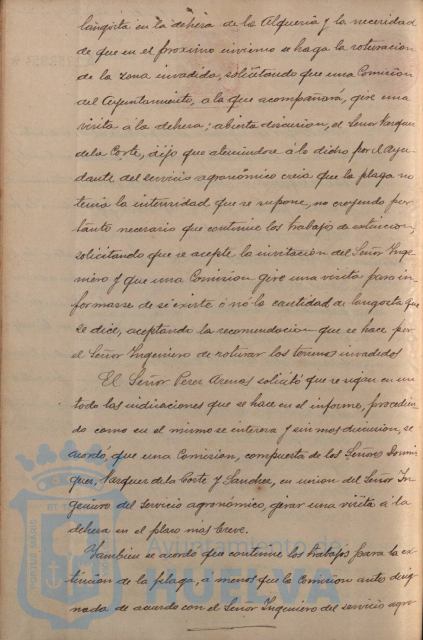 langosta en la dehesa de la Alquería y la necesidad
de que en el proximo invierno se haga la roturacion
de la zona invadida, solicitando que una Comision
del Ayuntamiento, a la que acompañará, gire una
visita á la dehesa; abierta discusion, el Señor Vazquez
de la Corte, dijo que ateniendose á lo dicho por el Ayu-
dante del servicio agronómico creia que la plaga no
tenia la intensidad que se supone, no creyendo por
tanto necesario que continúe los trabajos de extincion,
solicitando que se acepte la invitacion del Señor Inge-
niero y que una Comision gire una visita para in-
formarse de si existe ó nó la cantidad de langosta que
se dice, aceptando la recomendacion que se hace por
el Señor Ingeniero de roturar los terrenos invadidos
El Señor Perez Arenas solicitó que se sigan en un
todo las indicaciones que se hace en el informe, procedien-
do como en el mismo se interesa y sin mas discusion, se
acordó, que una Comision, compuesta de los Señores Domin
guez, Vazquez de la Corte y Sanchez, en union del Señor In-
geniero del servicio agronómico, girar una visita á la
dehesa en el plazo mas breve.
Tambien se acordó que continúe los trabajos para la ex-
tincion de la plaga, a menos que la Comision antes desig-
nada de acuerdo con el Señor Ingeniero del servicio agro
Ayuntamiento de
HUELVA